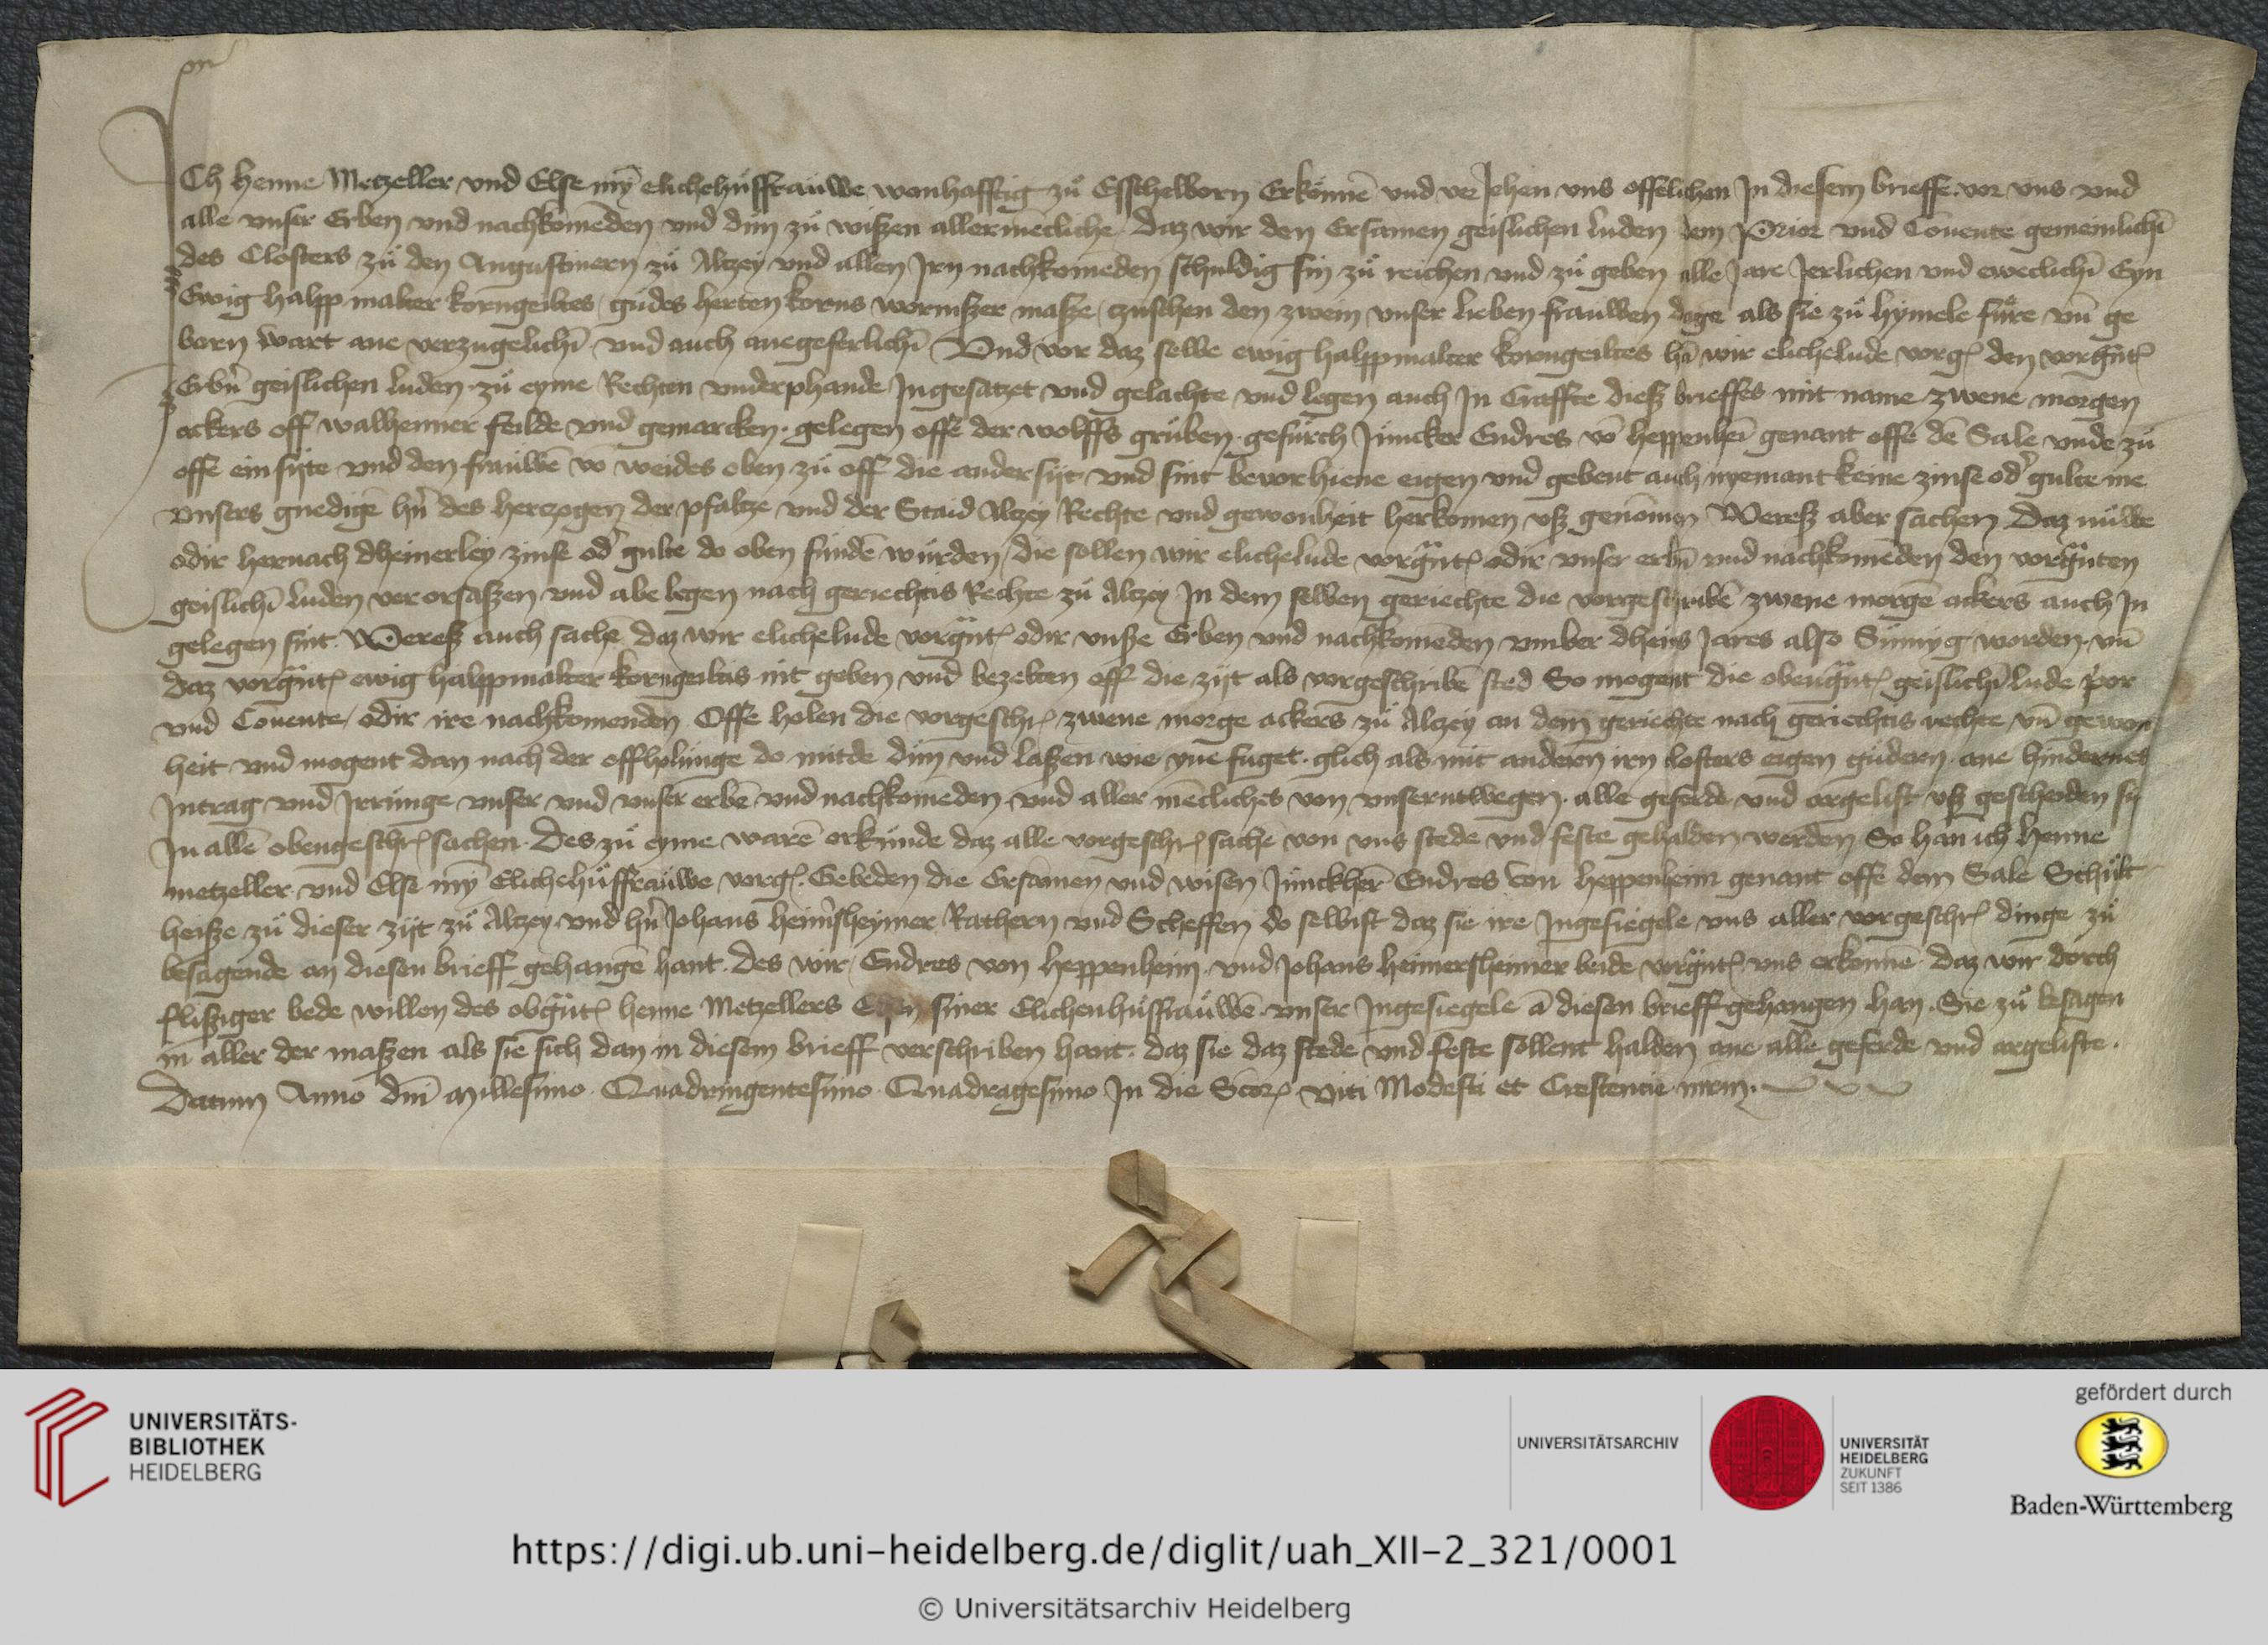 ICh Henne Metzeller und Else mȳ elichehuͦssfrauͦwe wonhafftig zuͦ Esschelborn Erkonnē und verJehen uns offelichen Jn diesem brieffe vor uns und
alle unser Erben und nachkomēden und dun zuͦ wißen allermēcliche daz wir den Ersamen geislichen luden dem Prior und Couente gemeinlichī
des Closters zuͦ den Augustinern zuͦ Altzey und allen Jrn nachkomēden schuldig sin zuͦ reichen und zuͦ geben alle Jare Jerlichen und eweclichī Eyn
Ewig halpp malter korngeiltes gudes herten korns wormßer maße czuschen den zwein unser lieben frauwen dage als sie zuͦ hymele fuͦre uñ ge
born wart ane verzugelichī und auch anegeferlichī Und vor daz selbe ewig halppmalter korngeiltes hā wir elichelude vorg den vorgnt
Erbn̄ geislichen luden zuͦ eyme Rechten underphande Jngesatzet und gelachte und legen auch Jn Craffte dieß brieffes mit name zwene morgen
ackers off walhenner feilde und gemarcken gelegen offe der wolffs gruben gefurch Juncker Endres vō heppenheī genant offe dē Sale unde zuͦ
offe ein sijte und den frauwē vō weides oben zuͦ off die ander sijt und sint bevorhiene eigen und gebent auch nyemant keine zinse od gulte me
unsers gnedigē hn̄ des hertzogen der pfaltze und der Staid Altzey Rechte und gewonheit herkomen uß genōmen Wereß aber sachen Daz nuwe
odir hernach dheinerley zinse od gulte do oben fundē wurden die sollen wir elichelude vorgnt odir unser erbn̄ und nachkomēden den vorgnten
geislichī luden verorsaßen und abe legen nach geriechtis Rechte zuͦ Altzey Jn dem selben geriechte die vorgeschribē zwene morgē ackers auch Jn
gelegen sint Wereß auch sachē daz wir elichelude vorgnt odir unße Erben und nachkomēden umber dheins Jares also Sumyg worden uñ
daz vorgnt ewig halppmalter korngeiltis nit geben und bezelten off die zijt als vorgeschribē sted So mogent die obengnt geislichī lude por
und Couente odir ire nachkomenden Offe holen die vorgeschr zwene morge ackers zuͦ Altzey an dem geriechte nach geriechtis rechte uñ gewon
heit und mogent dan nach der offholunge do mitde dun und laßen wie yne fuget glich als mit anderen irn closters eigen gudern ane hindernes
Jntrag und Jrrunge unser und unser erbē und nachkomēden und aller mēcliches von unserntwegen alle geferde und argelist uß gescheiden sy
Jn allē obengeschr sachen Des zuͦ eyme warē orkunde daz alle vorgeschr sache von uns stede und feste gehalden werden So han ich Henne
metzeller und Else mȳ Elichehuͦssfrauͦwe vorg Gebeden die Ersamen und wisen Junckherr Endres von Heppenheim genant offe dem Sale Schult
heiße zuͦ dieser zijt zuͦ Altzey und hn̄ Johans heimsheymer Rathern und Scheffen do selbist daz sie ire Jngesiegele uns aller vorgeschr dinge zuͦ
besagende an diesen brieff gehangē hant Des wir Endres von Heppenheim und Johans heimersheimer beide vorgnt uns erkennē daz wir dorch
flißiger bede willen des obgnt henne Metzellers siner Elichenhuͦssfrauͦwē unser Jngesiegele ā diesen brieff gehangen han Sie zuͦ besagen
in aller der maßen als sie sich dan in diesem brieff verschriben hant daz sie daz stede und feste sollent halden ane alle geferde und argeliste
Datum Anno dn̄i Millesimo Quadringentesimo Quadragesimo Jn die Sctor Viti Modesti et Crescentie mrm
UNIVERSITÄTS-
BIBLIOTHEK
HEIDELBERG
UNIVERSITÄTSARCHIV
UNIVERSITÄT
HEIDELBERG
ZUKUNFT
SEIT 1386
gefördert durch
Baden-Württemberg
https://digi.ub.uni-heidelberg.de/diglit/uah_XII-2_321/0001
© Universitätsarchiv Heidelberg